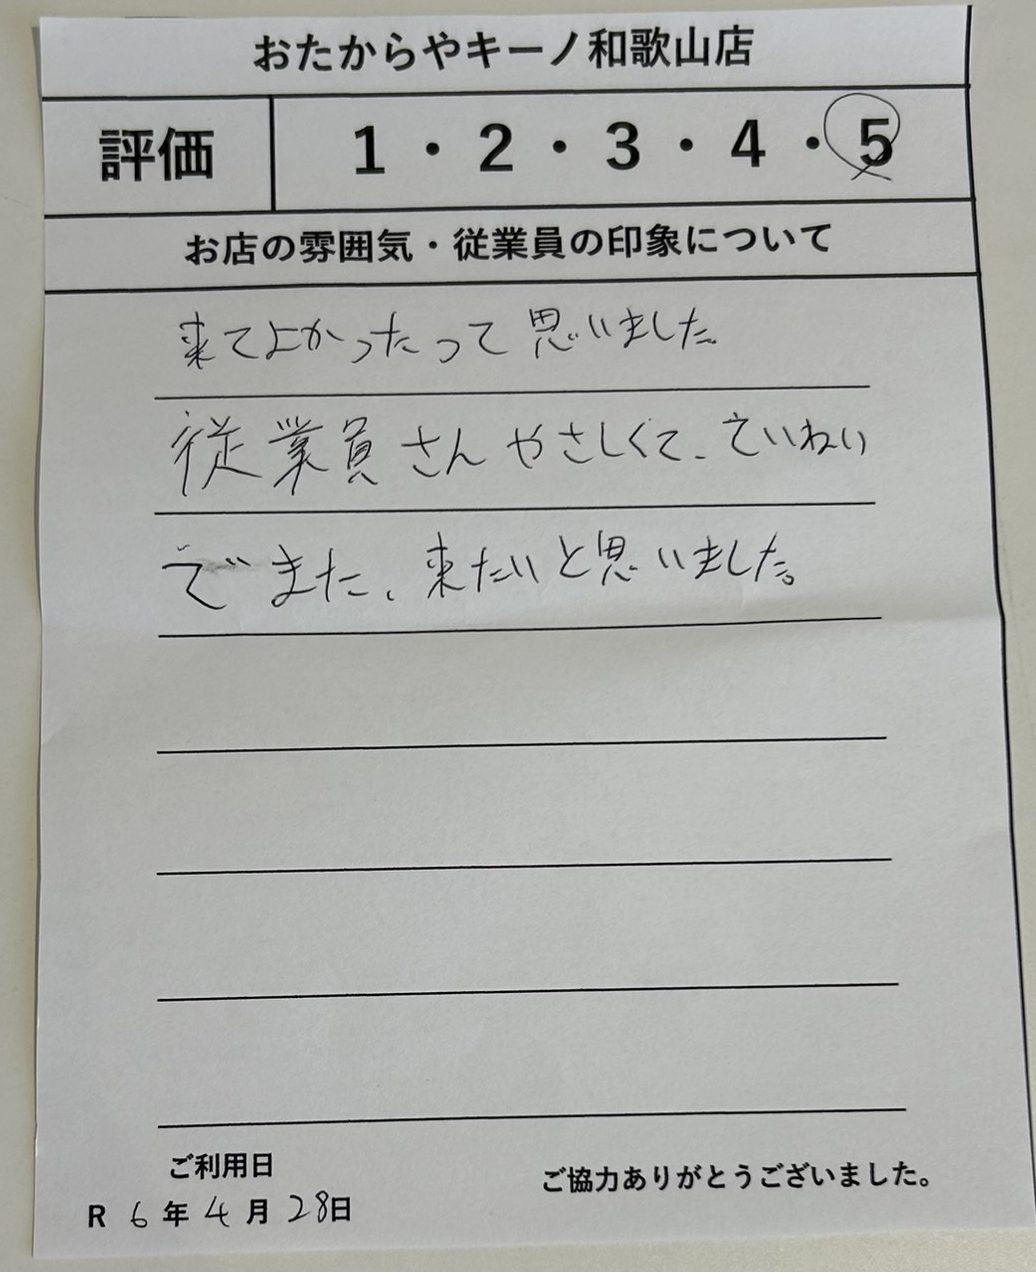 おたからやキーノ和歌山店
評価 1・2・3・4・5
お店の雰囲気・従業員の印象について
来てよかったって思いました。
従業員さんやさしくて、ていねい
でまた、来たいと思いました。
ご利用日
ご協力ありがとうございました。
R 6年 4月 28日